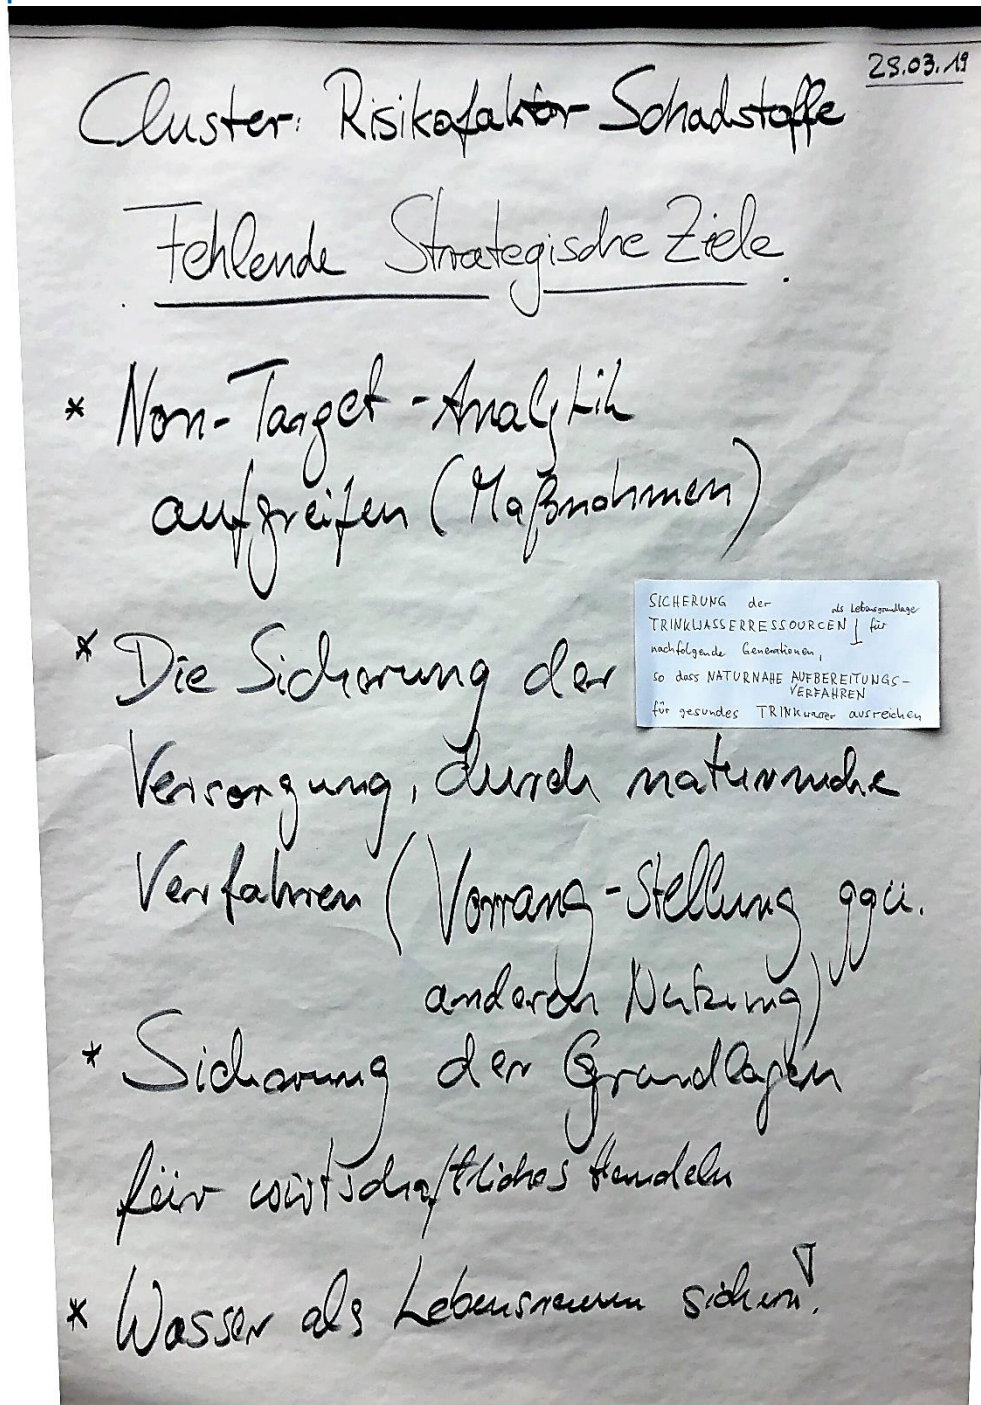 28.03.19
Cluster: Risikofaktor Schadstoffe
Fehlende Strategische Ziele
* Non-Target-Analytik
aufgreifen (Maßnahmen)
* Die Sicherung der
Versorgung, durch naturnahe
Verfahren (Vorrang-Stellung ggü.
anderen Nutzung)
SICHERUNG der als Lebensgrundlage
TRINKWASSERRESSOURCEN für
nachfolgende Generationen,
so dass NATURNAHE AUFBEREITUNGS-
VERFAHREN
für gesundes TRINKwasser ausreichen
* Sicherung der Grundlagen
für wirtschaftliches Handeln
* Wasser als Lebensraum sichern!